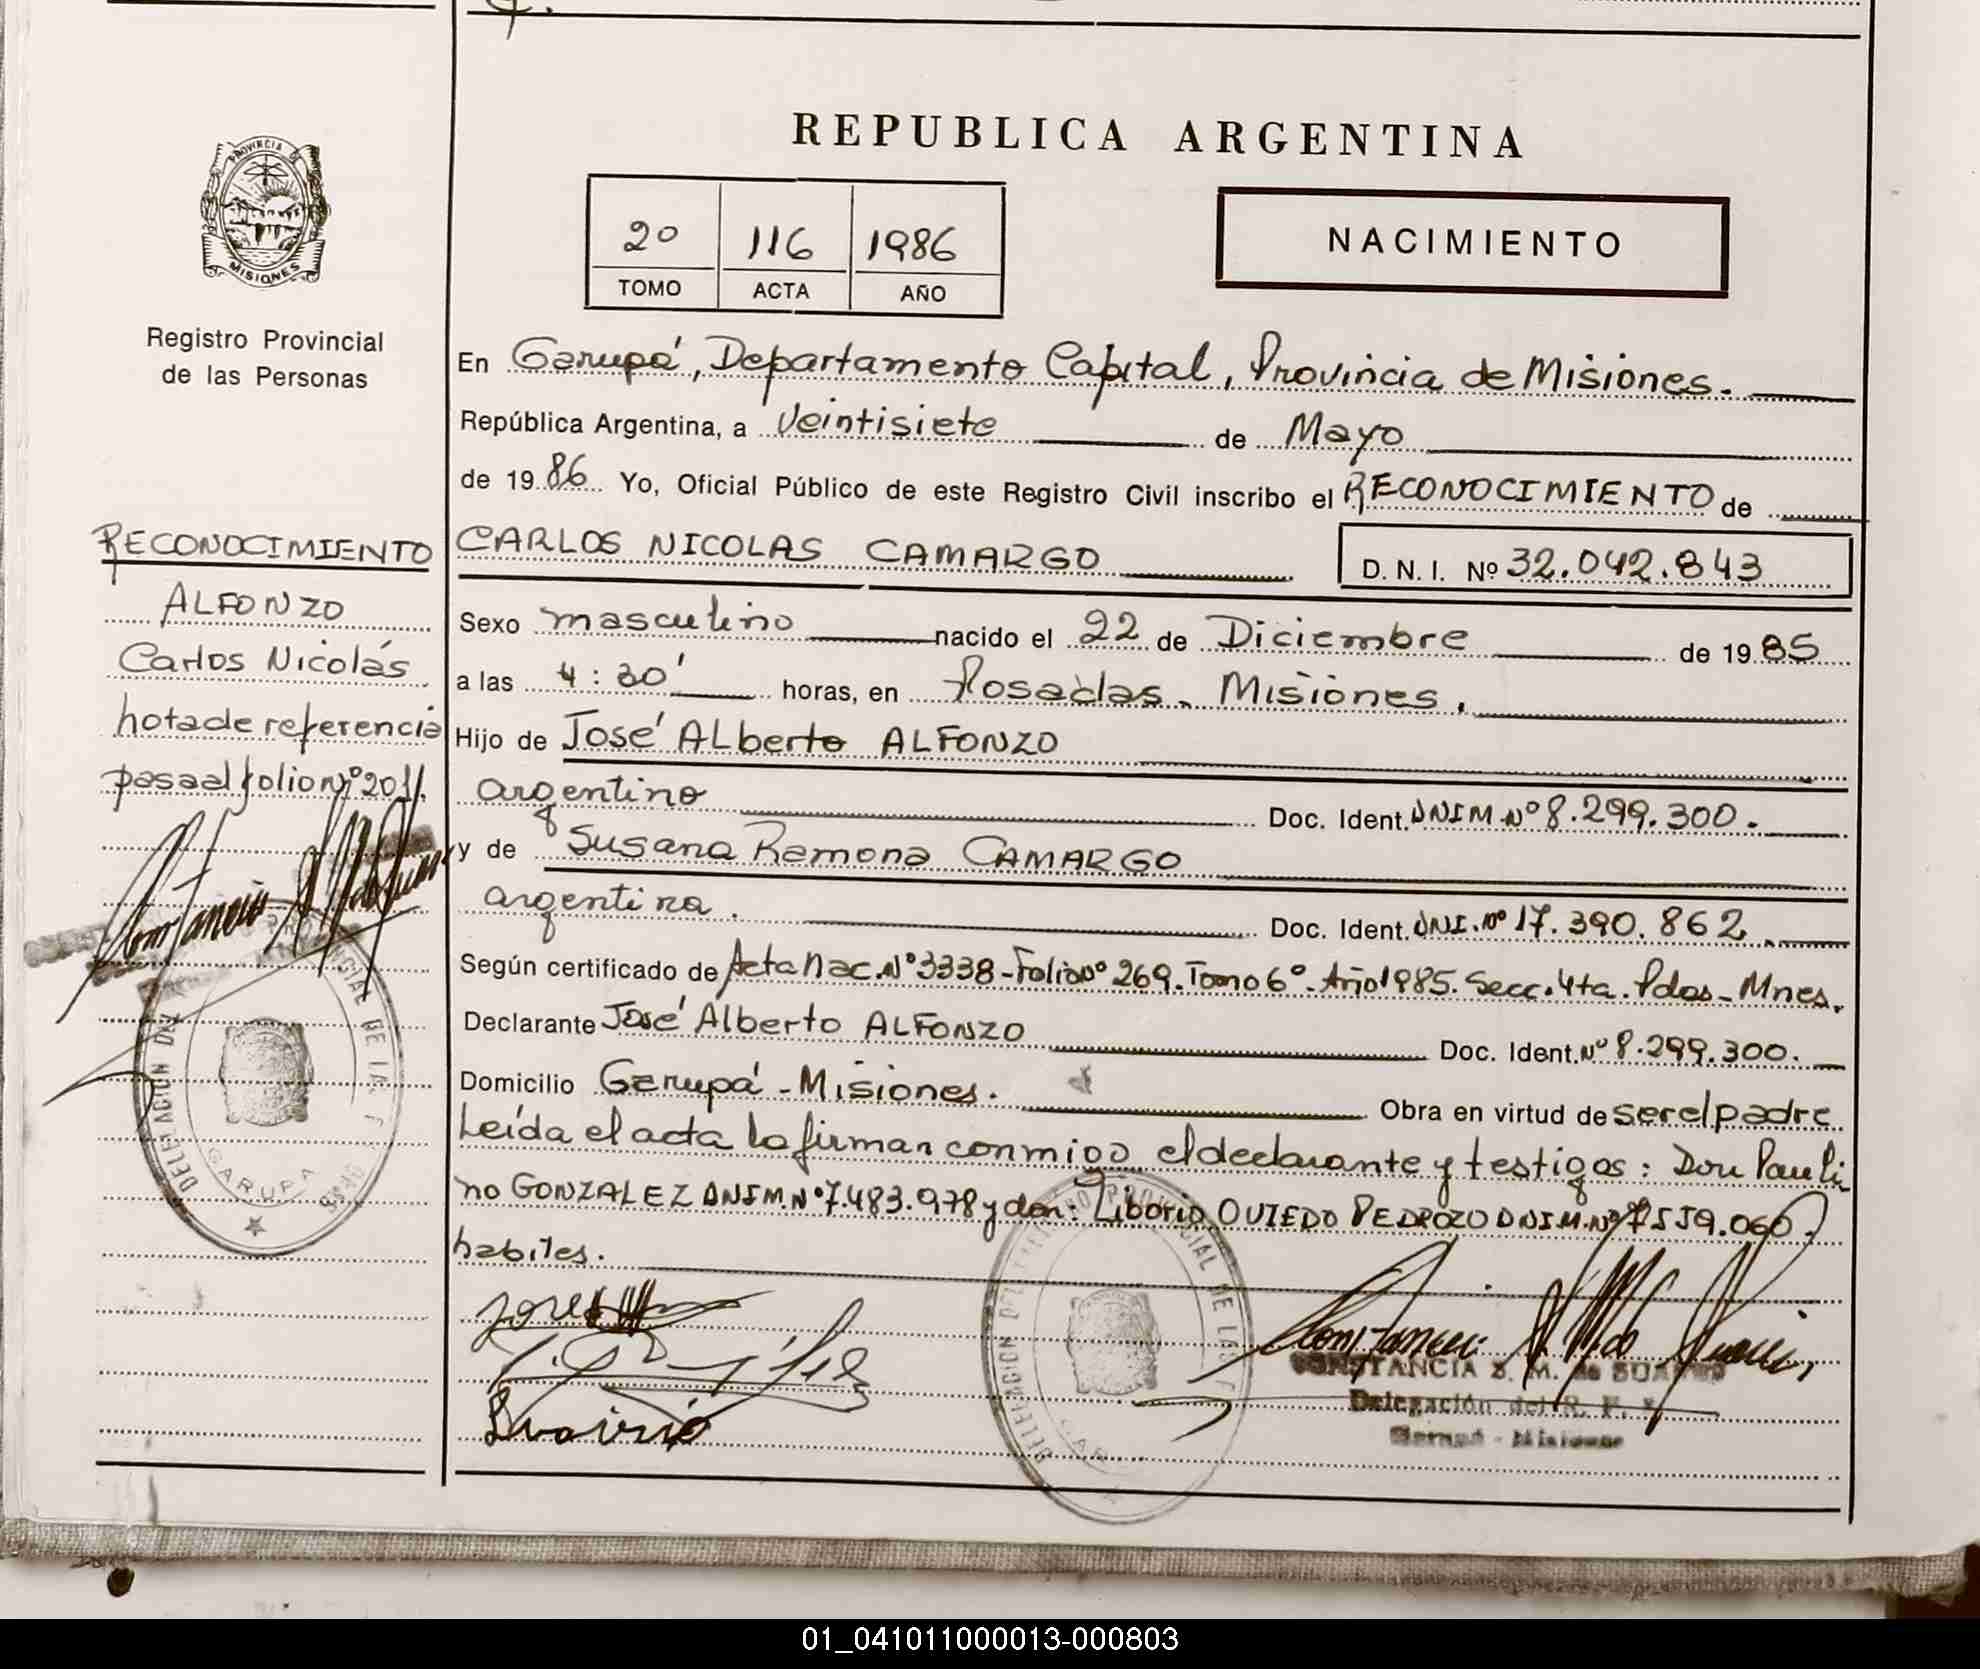 REPUBLICA ARGENTINA
PROVINCIA DE
MISIONES
Registro Provincial
de las Personas
2º 116 1986
TOMO ACTA AÑO
NACIMIENTO
En Garupá, Departamento Capital, Provincia de Misiones.
República Argentina, a Veintisiete de Mayo
de 1986 Yo, Oficial Público de este Registro Civil inscribo el RECONOCIMIENTO de
CARLOS NICOLAS CAMARGO D.N.I. Nº 32.042.843
Sexo masculino nacido el 22 de Diciembre de 1985
a las 4:30' horas, en Posadas, Misiones.
Hijo de José ALberto ALFONZO
argentino Doc. Ident. DNIM.Nº 8.299.300.
y de Susana Ramona CAMARGO
argentina. Doc. Ident. DNI.Nº 17.390.862
Según certificado de Acta Nac.Nº 3338-Folio Nº 269. Tomo 6º. Año 1985. Secc. 4ta. Pdas-Mnes.
Declarante José Alberto ALFONZO Doc. Ident. Nº 8.299.300.
Domicilio Garupá-Misiones. Obra en virtud de ser el padre
Leída el acta la firman conmigo el declarante y testigos: Don Pauli
no GONZALEZ DNIM.Nº 7.483.978 y don: Liborio OVIEDO PEDROZO DNIM.Nº 7.559.060.
habiles.
CONSTANCIA S. M. de
Delegación del R. P.
Garupá - Misiones
RECONOCIMIENTO
ALFONZO
Carlos Nicolás
nota de referencia
pasa al folio Nº 201
DELEGACION DEL
PROVINCIAL DE LAS
GARUPA
DELEGACION DEL
PROVINCIAL DE LAS
01_041011000013-000803